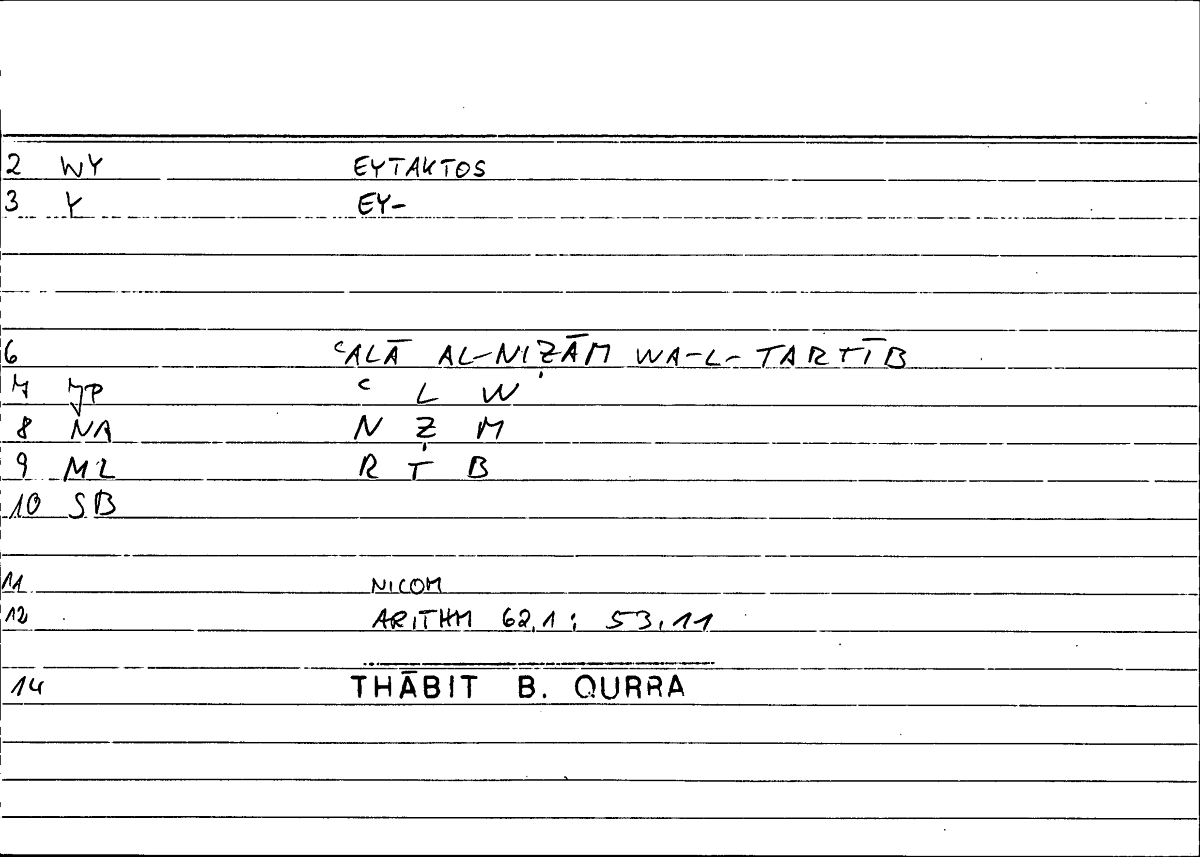 2 WY EYTAKTOS
3 Y EY-
6 ʿALĀ AL-NIẒĀM WA-L-TARTĪB
7 JP ʿ L W
8 NA N Ẓ M
9 ML R T B
10 SB
11 NICOM
12 ARITHM 62,1 : 53,11
14 THĀBIT B. QURRA